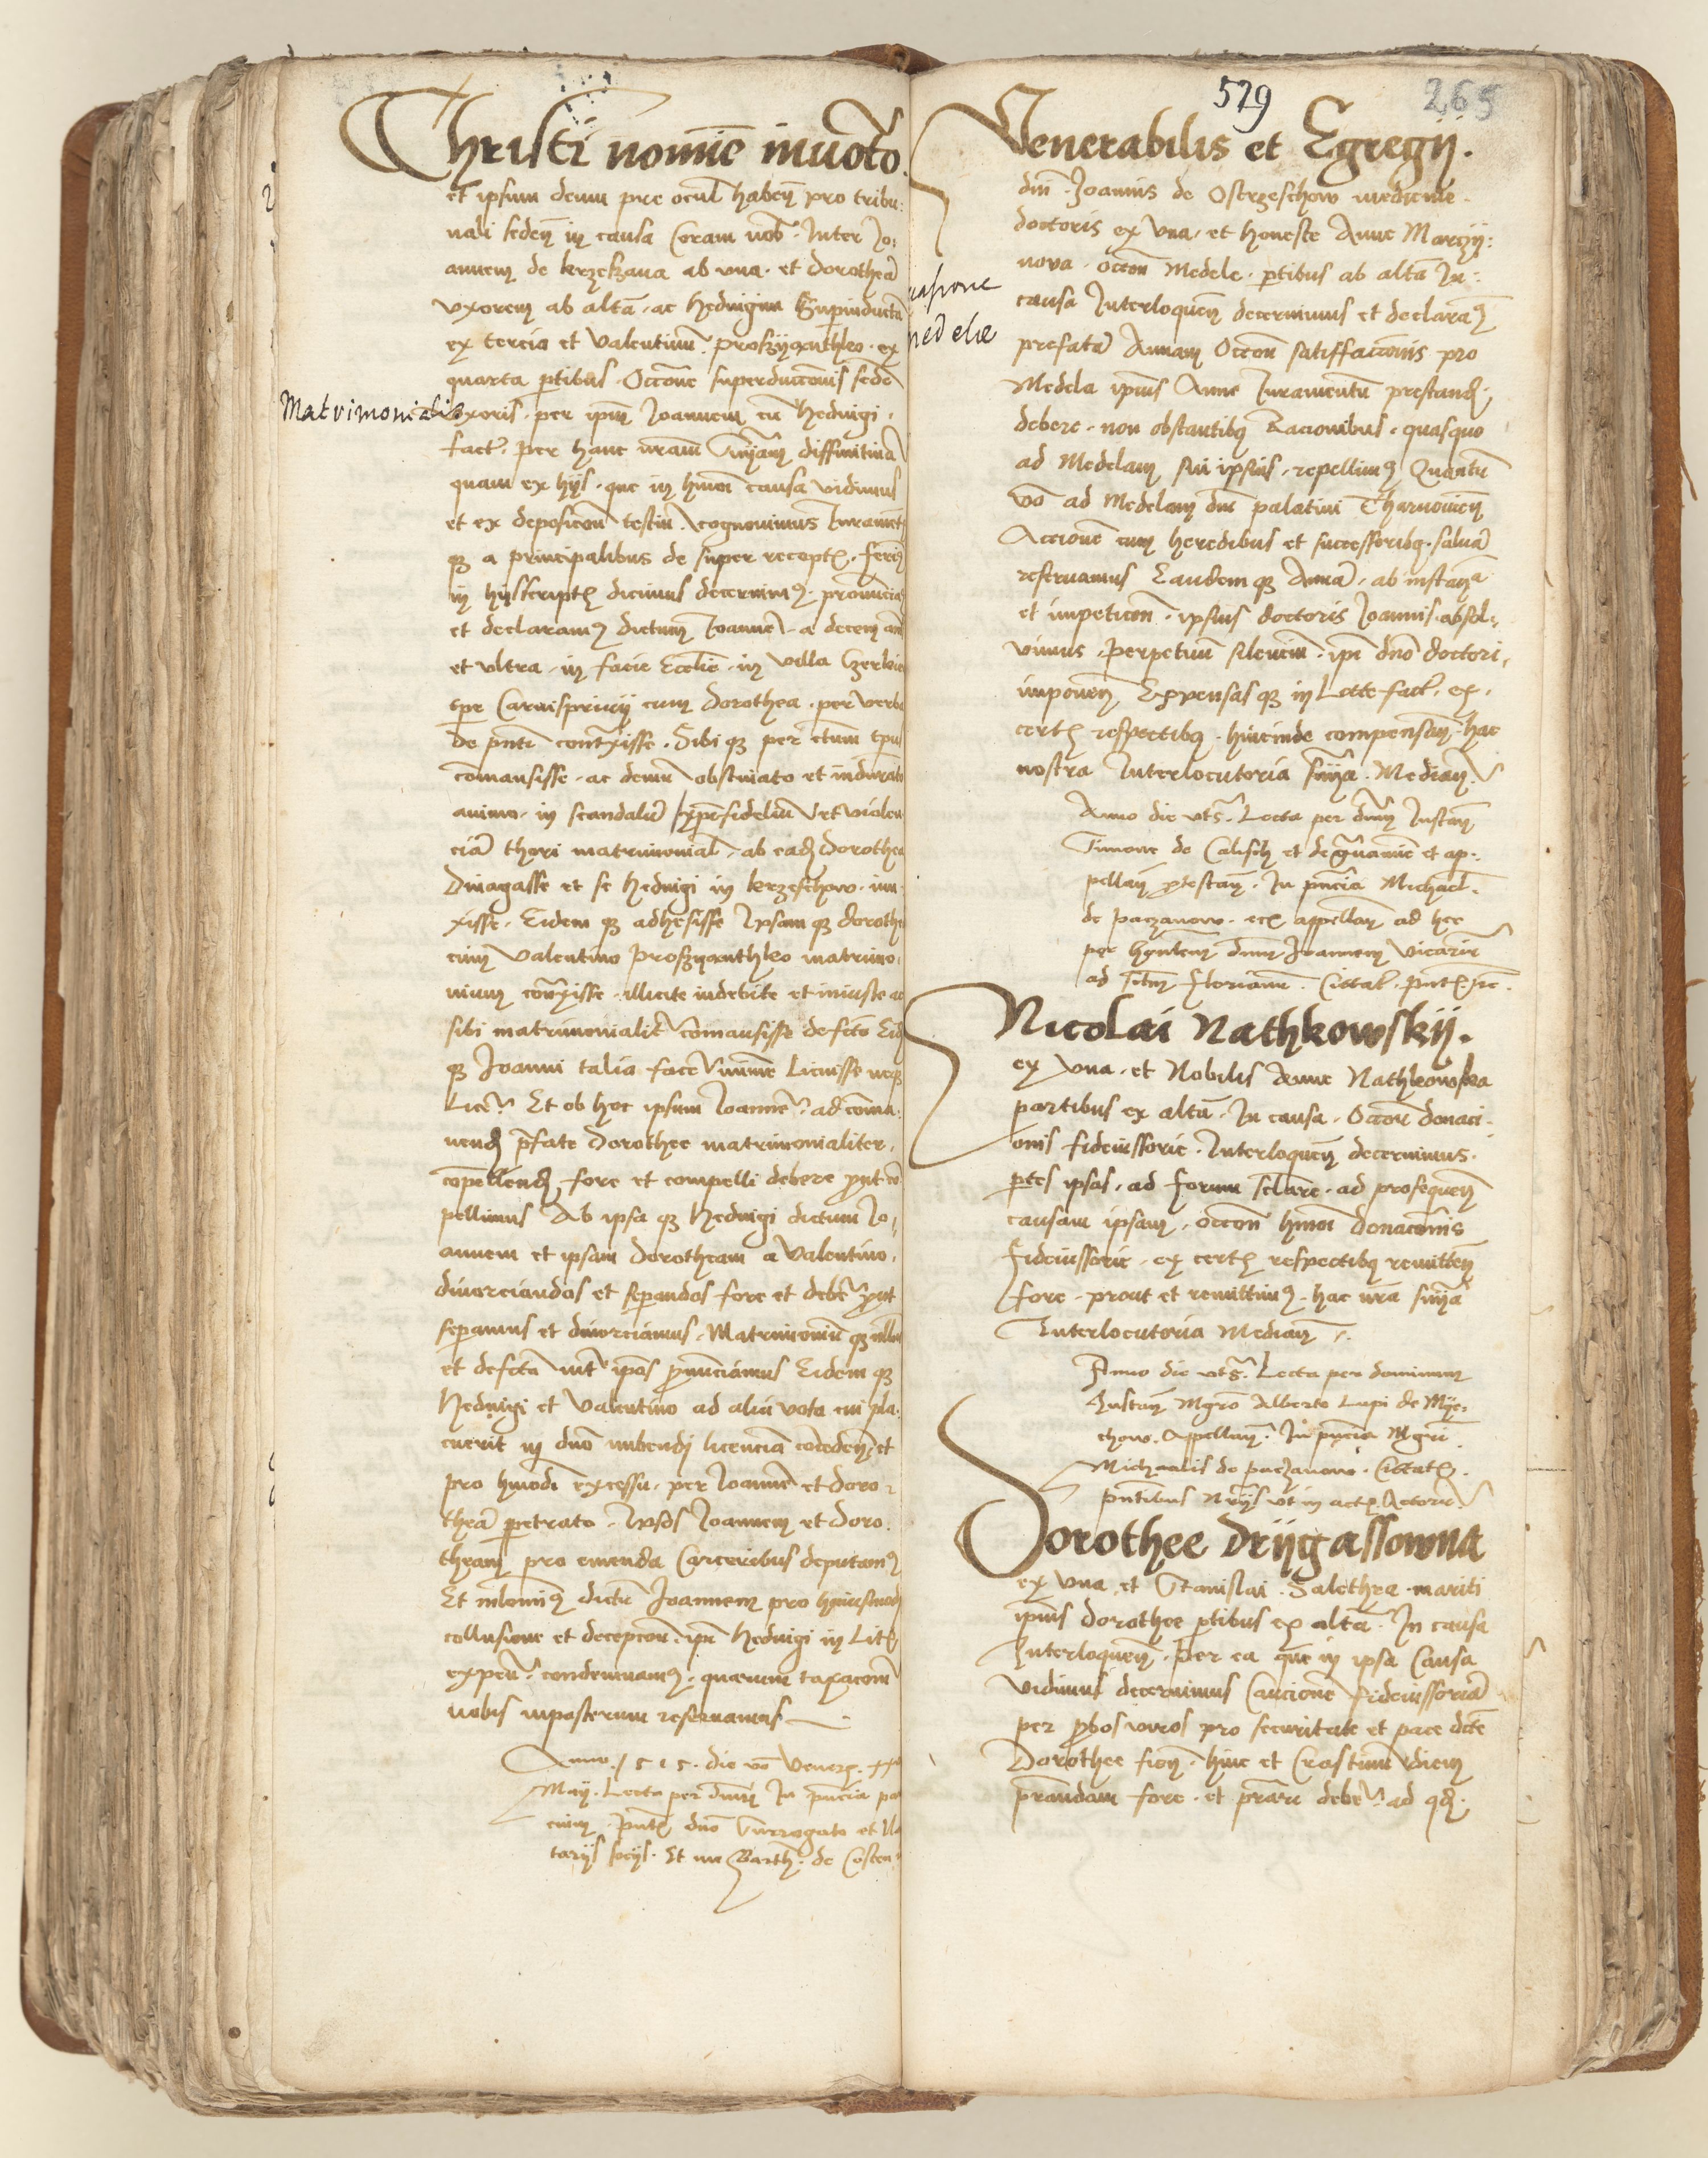 Christi nomine invocto.
et ipsum deum pre ocul haben pro tribu:
nali seden in causa Coram nob. Inter Jo:
annem de krzekzana ab vna. et Dorothea
vxorem ab alta. ac hedvigim Supinducta
ex tercia et Valentinum. proszyanthko. ex
quarta ptibus. Occone superduccionis sede
Matrimonialis
vxoris. per ipm Joannem cu hedvigi.
fact. per hanc nram Sniam diffinitiva
quam ex hijs. que in hmoi causa vidimus
et ex deposicon testiu. cognovimus Jurament
q a principalibus de super recept. feren
in hijs script dicimus decernim. pronuncia
et declaram dictum Joanne. a decem ann
et vltra. in facie Ecclie. in villa Czerkie
tpe Carnisprivij cum Dorothea. per verba
de pnti contraxisse. Sibi q per ctum tpus
comansisse. ac demu obstinato et indurato
animo. in scandalu xpifideliu et violen
cia thori matrimonial. ab eadem Dorothea
Divagasse et se hedvigi in krzeschow. iun
xisse. Eidem q adhesisse Ipsam q dorothe
cum Valentino proszyanthko matrimo.
nium contraxisse. illicite indebite et iniuste ac
sibi matrimonialit comansisse defcto Eid
q Joanni talia facere minime Licuisse neq
Lice. Et ob hoc ipsum Joanne. ad coma:
nend pfate Dorothee matrimonialiter.
compellend fore et compelli debere prout co
pellimus Ab ipsa q hedvigi dictum Jo.
annem et ipsam Dorotheam a Valentino.
divorciandos et sepandos fore et debe prout
sepamus et divorciamus. Matrimoniu q nullu
et defcto int ipos pnunciamus Eidem q
Hedvigi et Valentino ad alia vota cui pla.
cuerit in dno nubendi licencia conceden. et
pro hmodi excessu. per Joanne et Doro.
thea petrato. Ipsos Joannem et Doro.
theam pro emenda Carceribus deputam
Et nlomi dictu Joannem pro huiusmodi
collusione et decepcone. ipi hedvigi in Lit
expen. condemnam. quarum taxacom
nobis inposterum reservamus
Anno. 1515. die vo Vener.
Maij. Lecta per dnum In pncia pa
cium. pnt dno Surrogato et No
tarijs socijs. Et me Barth. de Costen
529
265
Venerabilis et Egregij.
dni. Joannis de Ostrzeschow medicine.
doctoris ex vna. et honeste Anne Marczij:
nova. occon Medele. ptibus ab alta In:
casione
medele
causa Interloquen decernimus et declaram
prefata Annam Occon satisfaccionis pro
Medela ipius Anne Juramentu prestand.
debere. non obstantib Racionibus. quasquo
ad Medelam sui ipsius. repellim Quantu
vo ad Medelam dni palatini Tharnovien
Accione cum heredibus et successorib. salva
reservamus Eandem q Anna. ab instancia
et impeticon. ipsius doctoris Joannis. absol.
vimus. perpetuu silenciu. ipi dno doctori.
imponen Expensas q in Lite fact. ex.
cert respectib. hincinde compensam. hac
nostra Interlocutoria Snia. Median.
Anno die vts. Lecta per dnum Instan
Simone de Calisch et de gravamine et ap.
pellan protestan. In pncia Michael.
de paczanow. etc appellan ad hec
per honestum dnum Joannem vicariu
ad Sctum Florianum. Cittat. pnt sic.
Nicolai Nathkowskij.
ex vna. et Nobilis Anne Nathkowska
partibus ex alta. In causa. Occon donaci.
onis fideiussorie. Interloquen decernimus.
ptes ipsas. ad forum sclare. ad prosequen
causam ipsam. occon hmoi donaconis
fideiussorie. ex cert respectib remitten
fore. prout et remittim. hac nra snia
Interlocutoria Median.
Anno die vts. Lecta per dominum
Instan Mgro Alberto Lupi de Mye.
chow. Appellan. In pncia Mgri
Michaelis de paczanow. Cittat.
pntibus Nrijs vt in act. Actoru.
Dorothee Drijgassowna
ex vna et Stanislai. Salethra. mariti
ipius Dorothee ptibus ex alta. In causa
Interloquen. Per ea que in ipsa Causa
vidimus decernimus Caucione fideiussoria
per pbos viros pro securitate et pace dcte
Dorothee fien. hinc et Crastinu diem
prandam fore. et prari debe. ad qd.